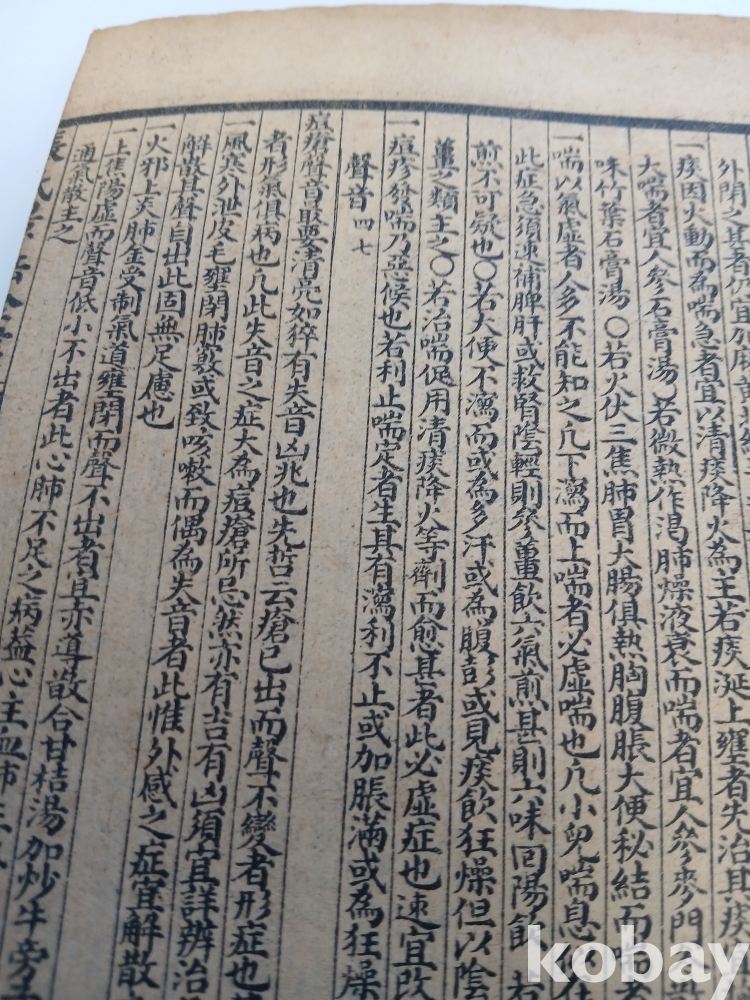 外閉之甚者仍宜
一痰因火動而為喘急者宜以清痰降火為主若痰涎上壅者先治其痰
大喘者宜人參石膏湯若微熱作渴肺燥液衰而喘者宜人參麥門
味竹葉石膏湯〇若火伏三焦肺胃大腸俱熱胸腹脹大便秘結而
一喘以氣虛者人多不能知之凡下瀉而上喘者必虛喘也凡小兒喘息
此症急須速補脾肝或救腎陰輕則參薑飲六氣煎甚則六味回陽飲若
煎不可疑也〇若大便不瀉而或為多汗或為腹彭或見痰飲狂燥但以陰
薑之類主之〇若治喘促用清痰降火等劑而愈甚者此必虛症也速宜改
一痘疹發喘乃惡候也若利止喘定者生其有瀉利不止或加脹滿或為狂燥
聲音 四七
痘瘡聲音最要清亮如猝有失音凶兆也先哲云瘡已出而聲不變者形症也
者形氣俱病也凡此失音之症大為痘瘡所忌然亦有吉有凶須宜詳辨治
一風寒外泄皮毛壅閉肺竅或致咳嗽而偶為失音者此惟外感之症宜解散
解散其聲自出此固無足慮也
一火邪上炎肺金受制氣道壅閉而聲不出者宜亦導散合甘桔湯加炒牛旁
一上焦陽虛而聲音低小不出者此心肺不足之病蓋心主血肺主
通氣散主之
kobay